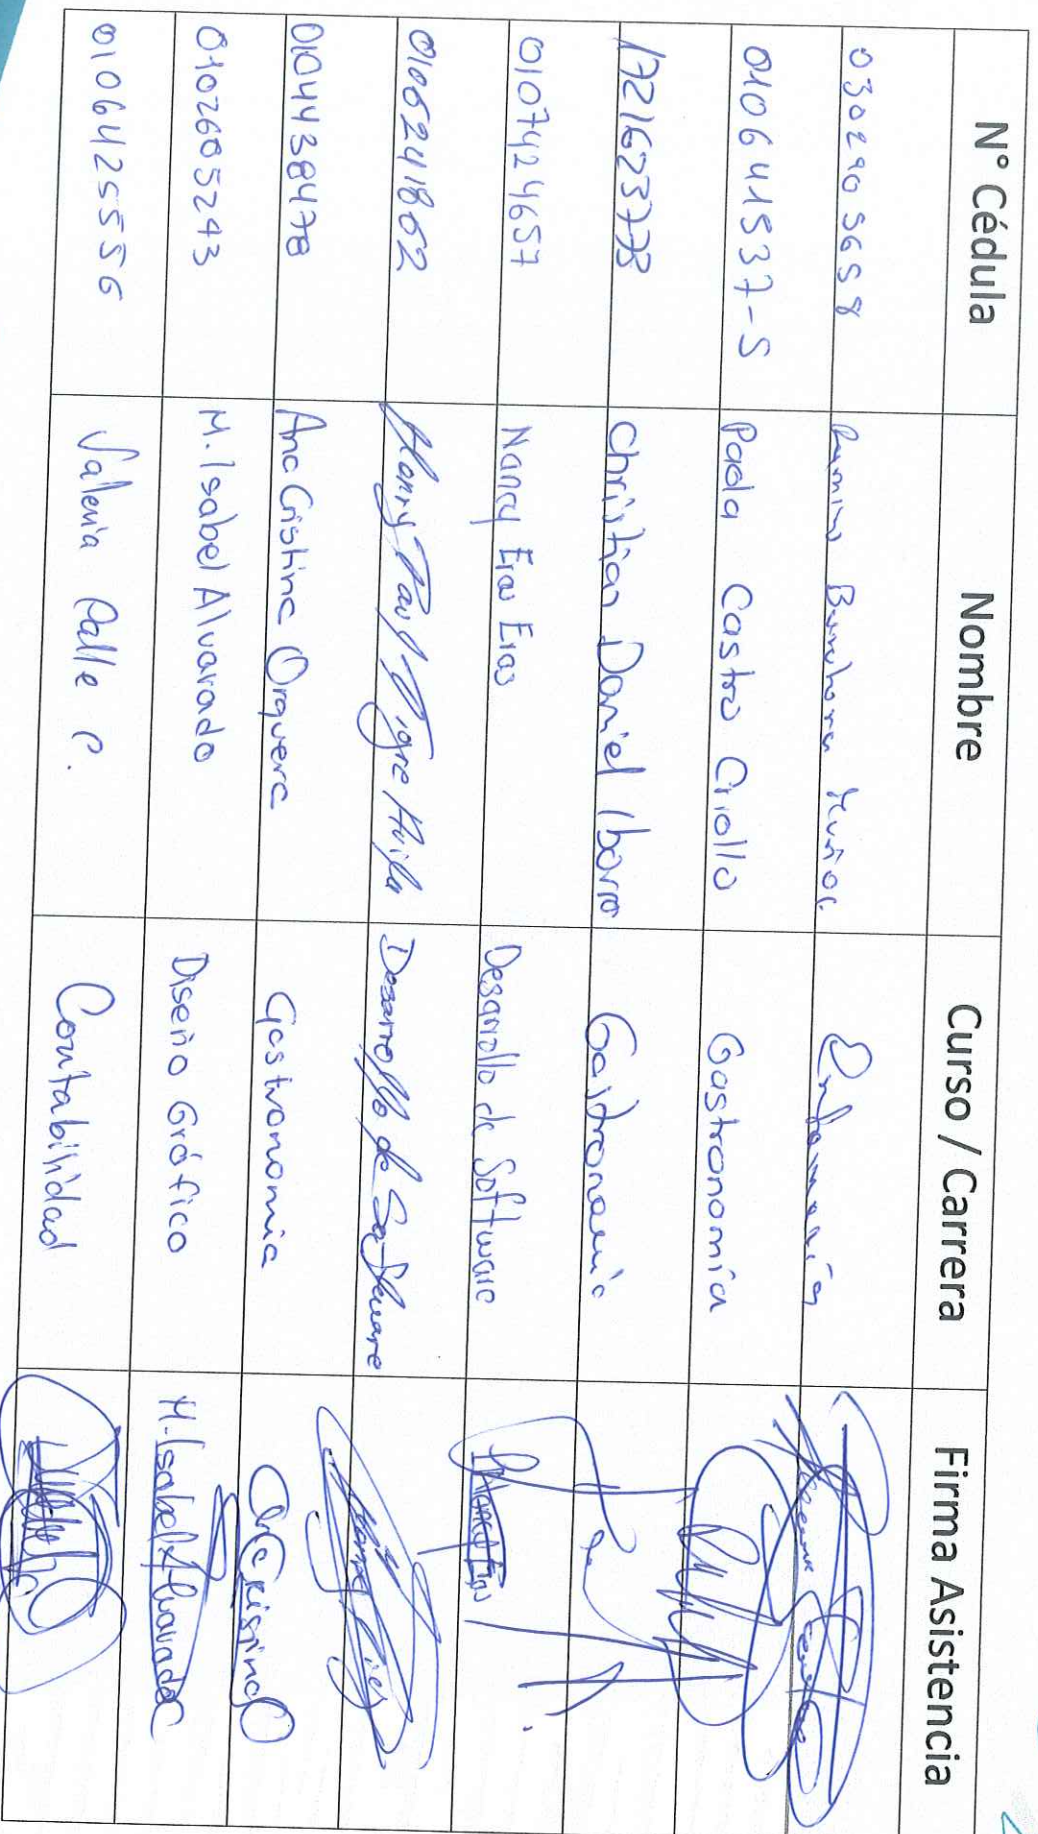 N° Cédula Nombre Curso / Carrera Firma Asistencia
0302905658 Muñoz
010641537-5 Paola Castro Criollo Gastronomía
1721623773 Christian Daniel Ibarra Gastronomia
0107424657 Nancy Eras Eras Desarrollo de Software
0106241862 Henry Paul Desarrollo de Software
0104438478 Ana Cristina Orquera Gastronomia Ana Cristina O
0102605243 M. Isabel Alvarado Diseño Gráfico M. Isabel Alvarado C
0106425556 Valeria Calle C. Contabilidad